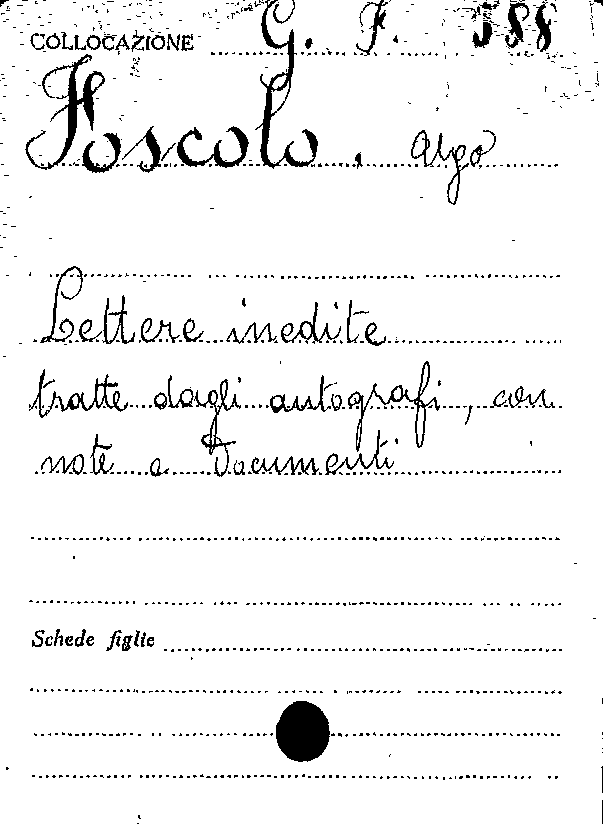 COLLOCAZIONE G. F. 588
Foscolo. Ugo
Lettere inedite
tratte dagli autografi, con
note e Documenti
Schede figlie